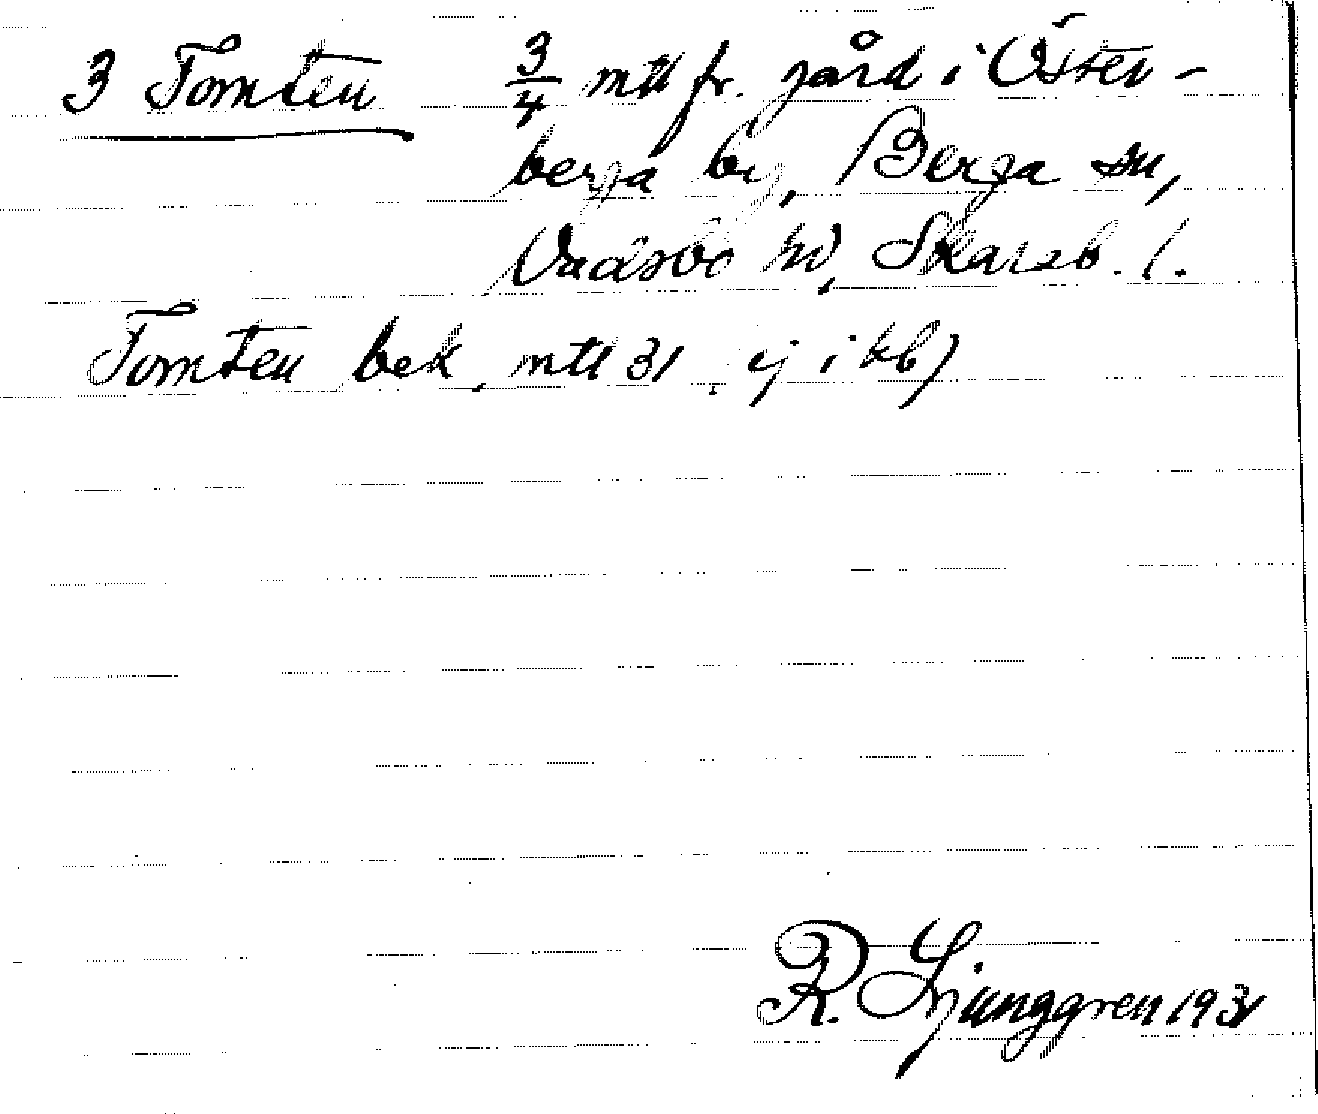 3 Tomten 3/4 mtl fr. gård i Öster-
berga by, Berga sn,
Vadsbo hd, Skarab. l.
Tomten bek. mtl 31 ej i kb)
R. Ljunggren 1931